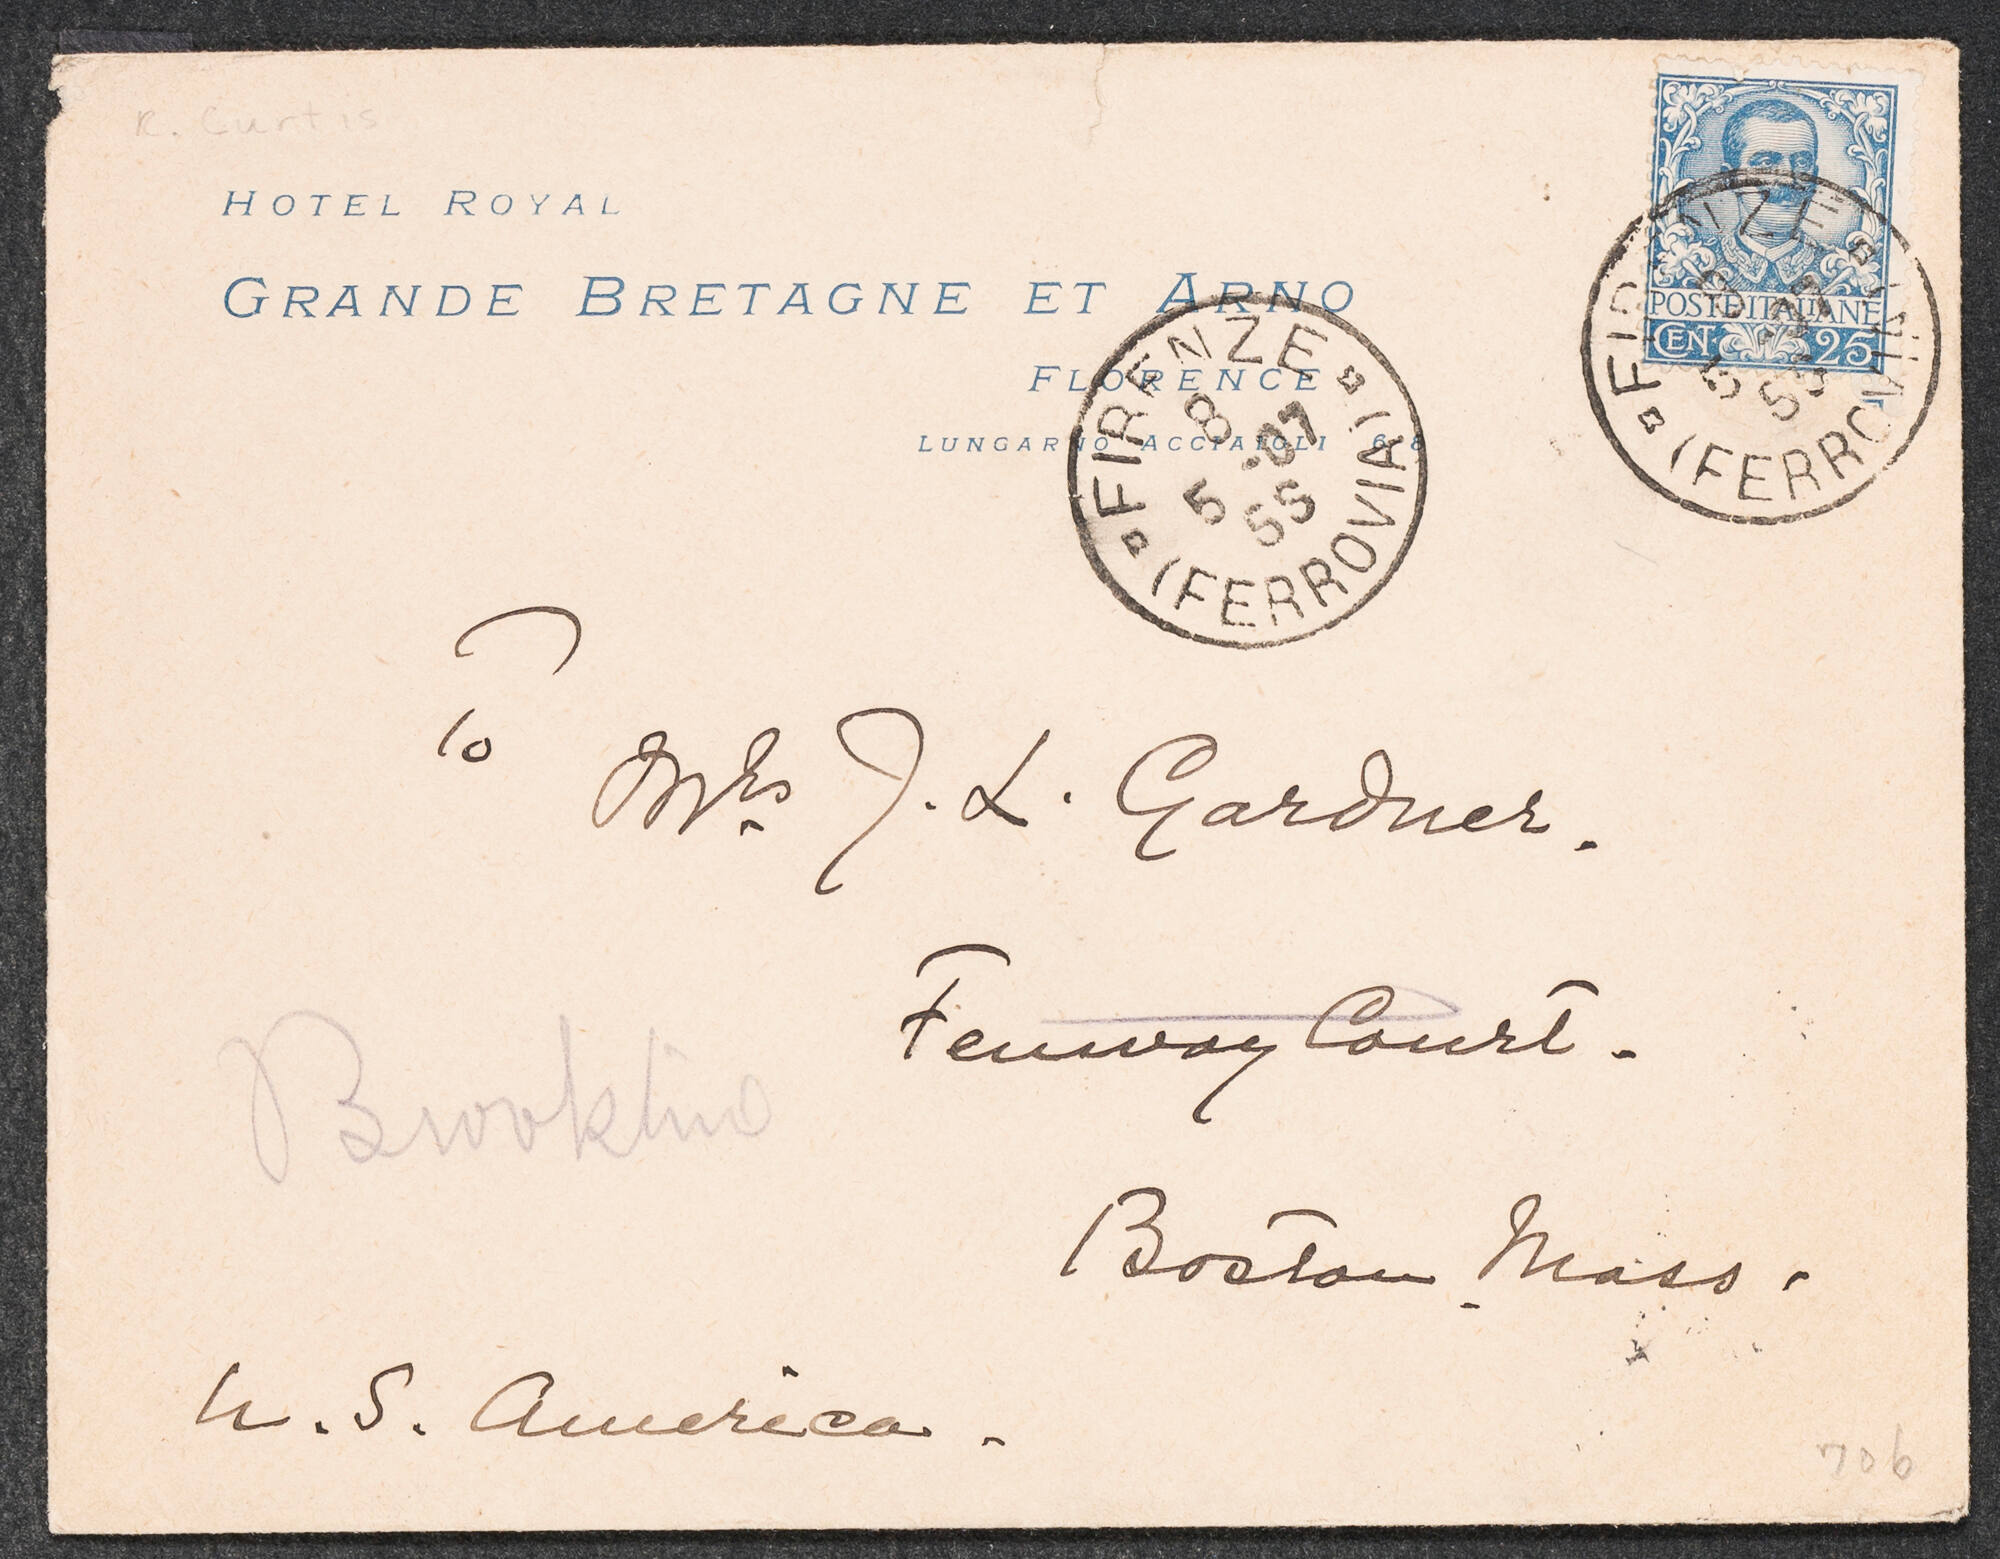 R. Curtis
HOTEL ROYAL
GRANDE BRETAGNE ET ARNO
FLORENCE
LUNGARNO ACCIAIOLI 6-8
POSTE ITALIANE
CEN. 25
FIRENZE
(FERROVIA)
FIRENZE
8 5 .07
5S
(FERROVIA)
To
Mrs J. L. Gardner.
Fenway Court.
Brookline
Boston Mass.
U. S. America.
706